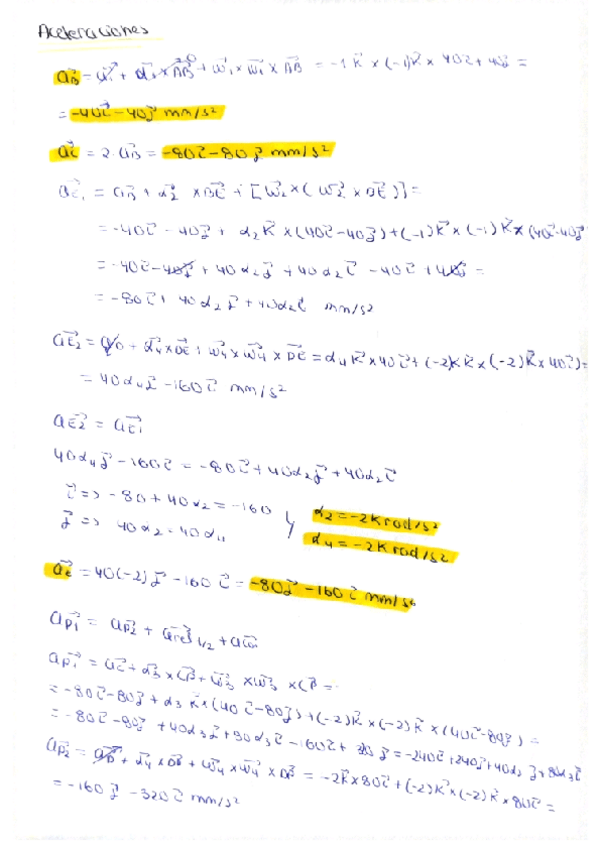 Aceleraciones
a⃗B = a⃗A + α⃗1 × AB⃗ + ω⃗1 × ω⃗1 × AB⃗ = -1 k⃗ × (-1)k⃗ × 40i⃗ + 40j⃗ =
= -40i⃗ - 40j⃗ mm/s²
a⃗C = 2 · a⃗B = -80i⃗ - 80j⃗ mm/s²
a⃗E1 = a⃗B + α⃗2 × BE⃗ + [ω⃗2 × (ω⃗2 × BE⃗)] =
= -40i⃗ - 40j⃗ + α2 k⃗ × (40i⃗ - 40j⃗) + (-1)k⃗ × (-1)k⃗ × (40i⃗ - 40j⃗)
= -40i⃗ - 40j⃗ + 40α2 j⃗ + 40α2 i⃗ - 40i⃗ + 40j⃗ =
= -80i⃗ + 40α2 j⃗ + 40α2 i⃗ mm/s²
a⃗E2 = a⃗D + α⃗4 × DE⃗ + ω⃗4 × ω⃗4 × DE⃗ = α4 k⃗ × 40i⃗ + (-2)k⃗ × (-2)k⃗ × 40i⃗ =
= 40α4 j⃗ - 160i⃗ mm/s²
a⃗E2 = a⃗E1
40α4 j⃗ - 160i⃗ = -80i⃗ + 40α2 j⃗ + 40α2 i⃗
i⃗ => -80 + 40α2 = -160
α2 = -2k rad/s²
j⃗ => 40α2 = 40α4
α4 = -2k rad/s²
a⃗E = 40(-2)j⃗ - 160i⃗ = -80j⃗ - 160i⃗ mm/s²
a⃗P1 = a⃗P2 + a⃗rel 1/2 + a⃗cor
a⃗P1 = a⃗C + α⃗3 × CP⃗ + ω⃗3 × ω⃗3 × CP⃗ =
= -80i⃗ - 80j⃗ + α3 k⃗ × (40i⃗ - 80j⃗) + (-2)k⃗ × (-2)k⃗ × (40i⃗ - 80j⃗) =
= -80i⃗ - 80j⃗ + 40α3 j⃗ + 80α3 i⃗ - 160i⃗ + j⃗ = -240i⃗ + 240j⃗ + 40α3 j⃗ + 80α3 i⃗
a⃗P2 = a⃗D + α⃗4 × DP⃗ + ω⃗4 × ω⃗4 × DP⃗ = -2k⃗ × 80i⃗ + (-2)k⃗ × (-2)k⃗ × 80i⃗ =
= -160j⃗ - 320i⃗ mm/s²